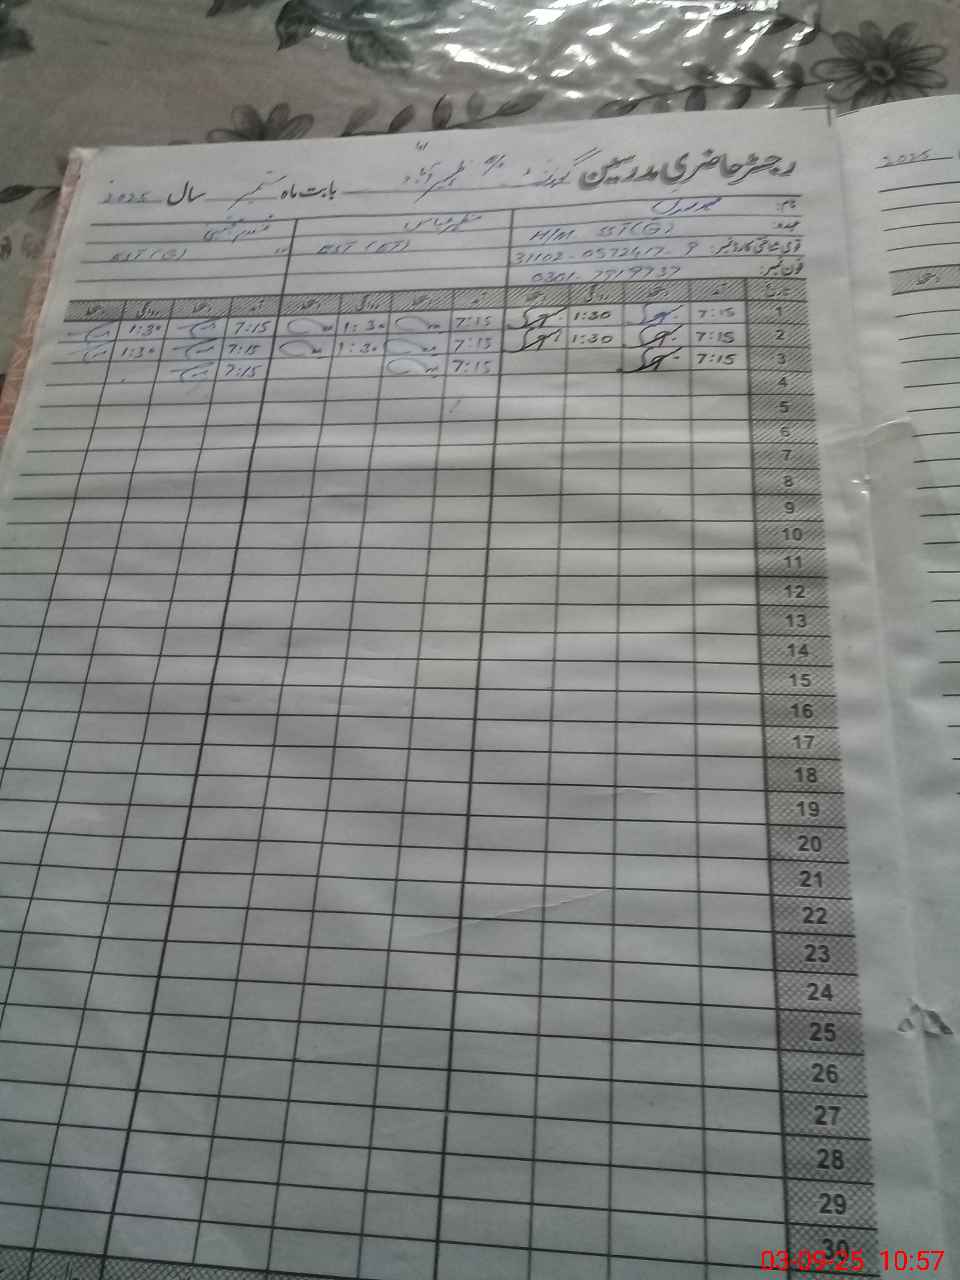 رجسٹر حاضری مدرسین گورنمنٹ بابت ماہ ستمبر سال 2025
2025
نام:
عہدہ: H/M SST(G) EST (ET) EST (G)
قومی شناختی کارڈ نمبر: 31102-0572417-9
فون نمبر: 0301-7919737
تاریخ آمد دستخط روانگی دستخط آمد دستخط روانگی دستخط آمد دستخط روانگی دستخط
1 7:15 1:30 7:15 1:30 7:15 1:30
2 7:15 1:30 7:15 1:30 7:15 1:30
3 7:15 7:15 7:15
4
5
6
7
8
9
10
11
12
13
14
15
16
17
18
19
20
21
22
23
24
25
26
27
28
29
30
03-09-25 10:57